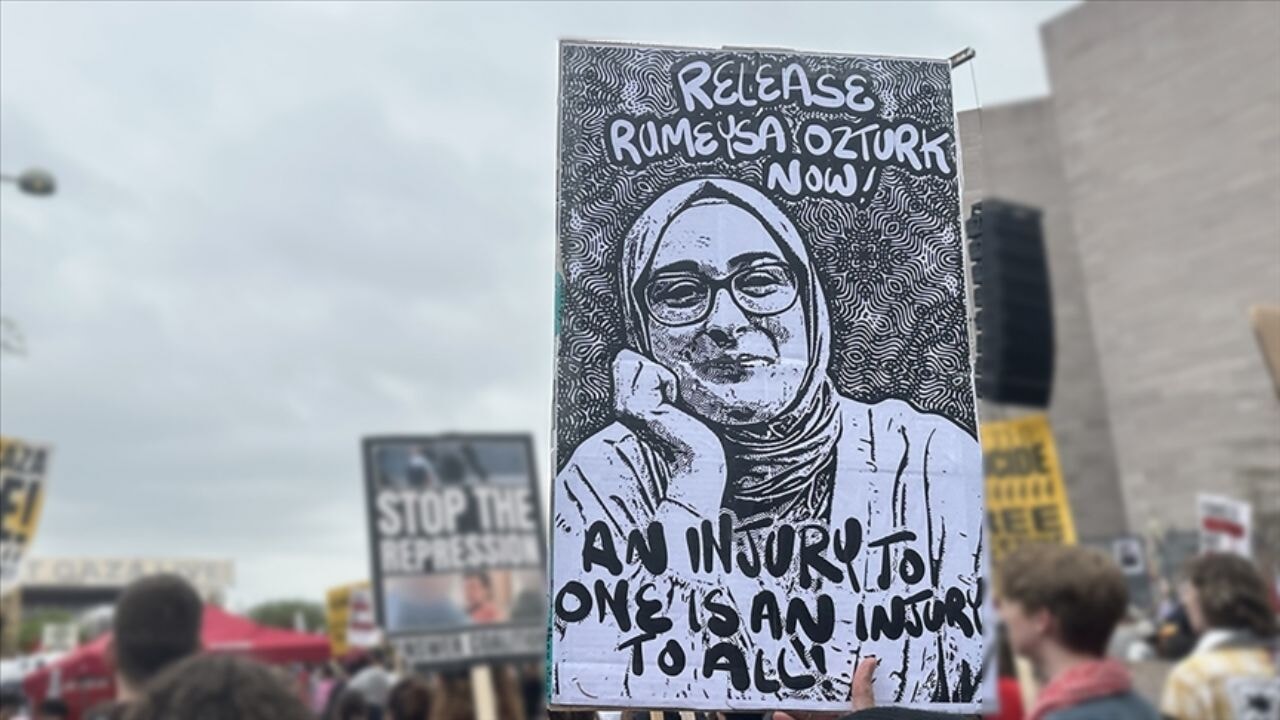 RELEASE
RUMEYSA OZTURK
NOW!
AN INJURY TO
ONE IS AN INJURY
TO ALL!
STOP THE
REPRESSION